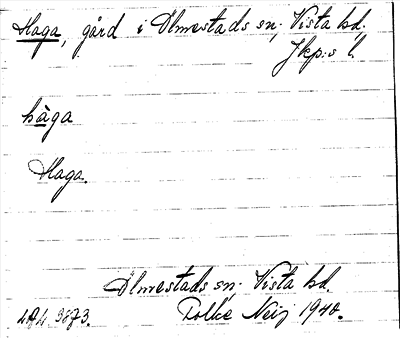 Haga, gård i Ölmestads sn, Vista hd.
Jkp:s l.
håga
Haga.
Ölmestads sn. Vista hd.
Folke Neij 1940.